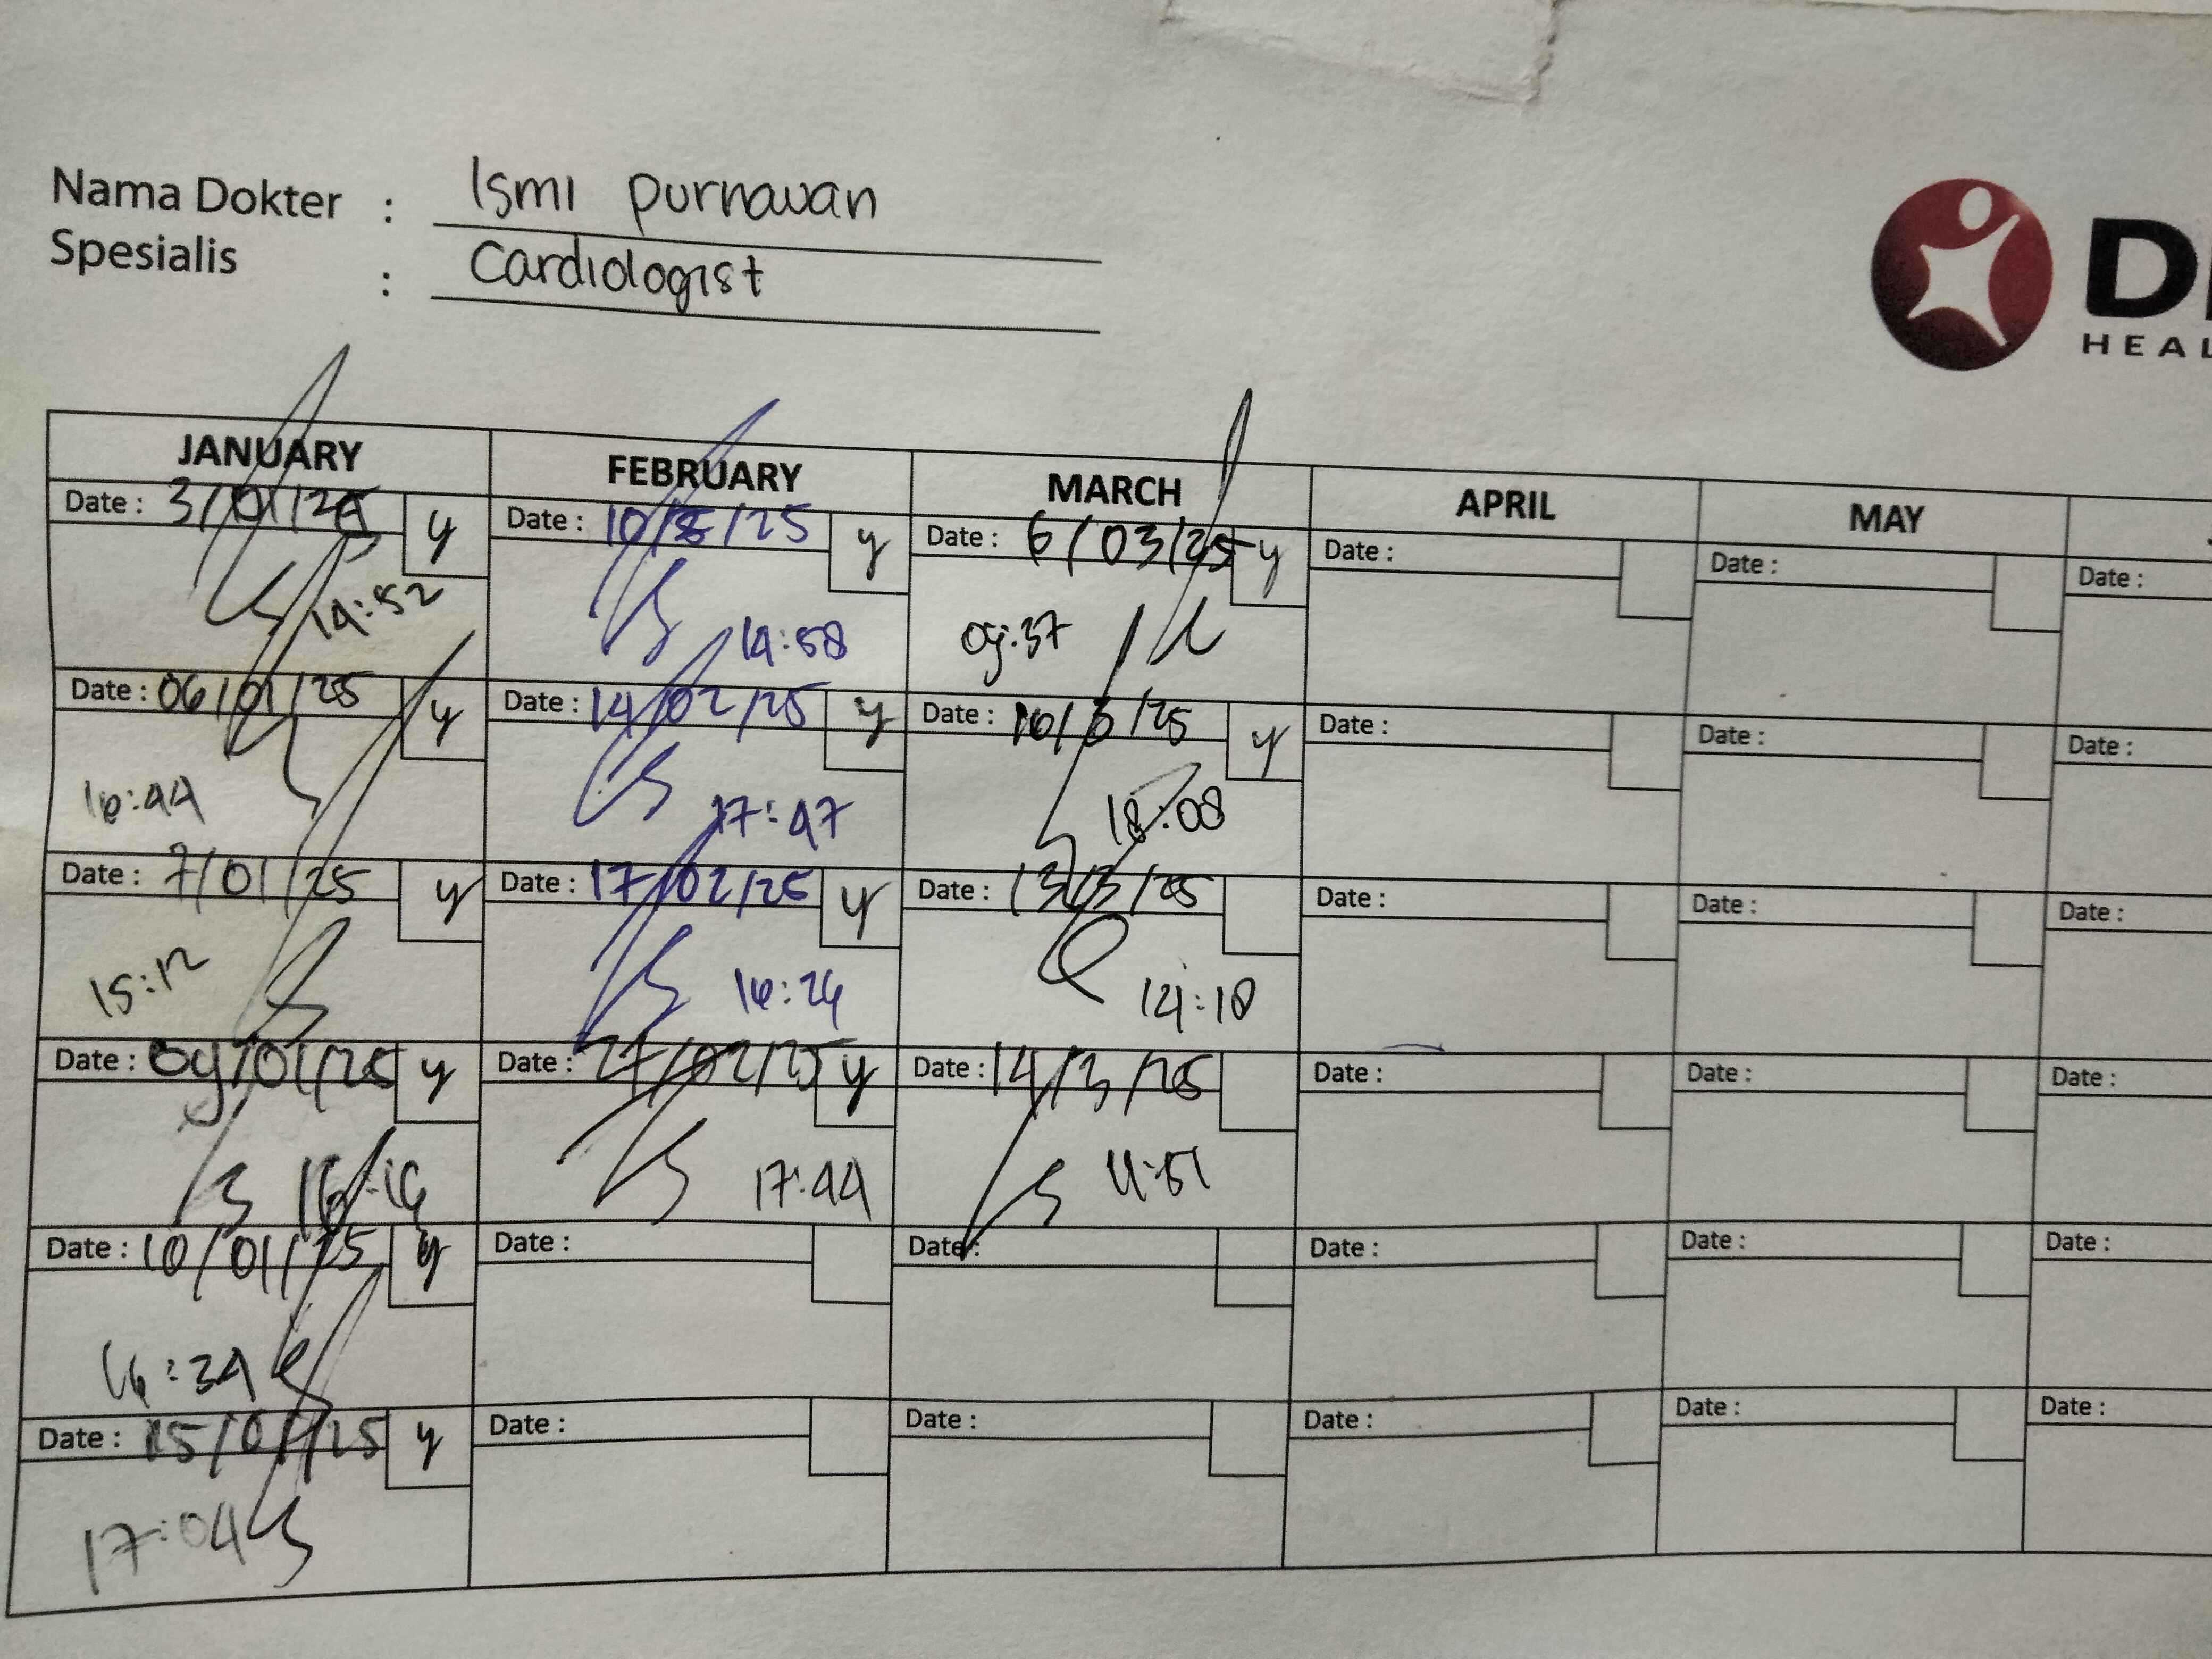 Nama Dokter : Ismi purnawan
Spesialis : Cardiologist
D
HEAL
JANUARY FEBRUARY MARCH APRIL MAY
Date : 3/01/25 y Date : 10/2/25 y Date : 6/03/25 y Date : Date : Date :
14:52 14:58 09:37
Date : 06/01/25 y Date : 14/02/25 y Date : 10/3/25 y Date : Date : Date :
16:44 17:47 18:08
Date : 7/01/25 y Date : 17/02/25 y Date : 13/3/25 Date : Date : Date :
15:12 16:24 14:18
Date : 09/01/25 y Date : 27/02/25 y Date : 14/3/25 Date : Date : Date :
16:16 17:44 11:51
Date : 10/01/25 y Date : Date : Date : Date : Date :
16:34
Date : 15/01/25 y Date : Date : Date : Date : Date :
17:04